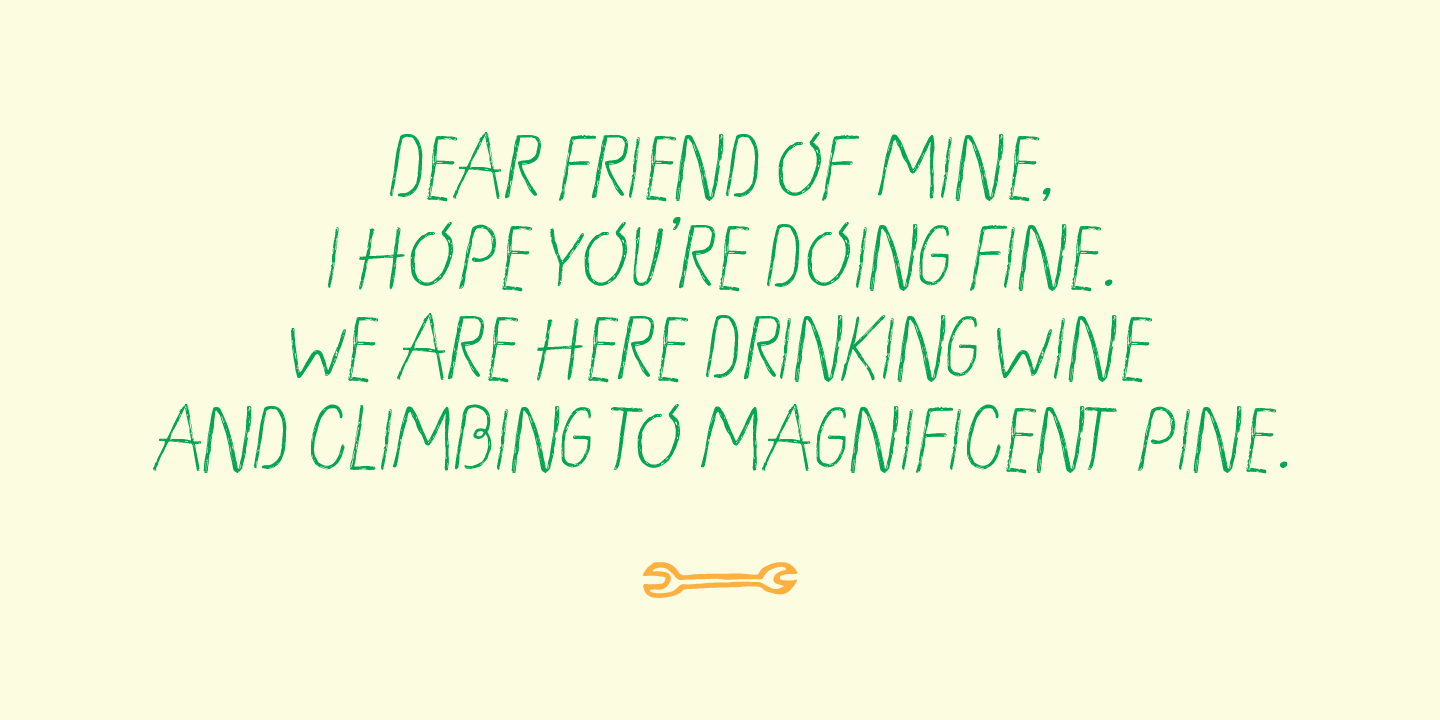 DEAR FRIEND OF MINE,
I HOPE YOU'RE DOING FINE.
WE ARE HERE DRINKING WINE
AND CLIMBING TO MAGNIFICENT PINE.